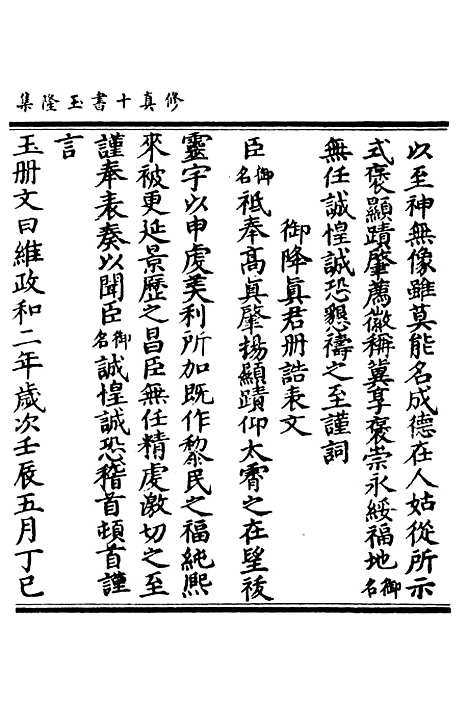 修真十書玉隆集
以至神無像雖莫能名成德在人姑從所示
式褒顯蹟肇薦徽稱冀享褒崇永綏福地御名
無任誠惶誠恐懇禱之至謹詞
御降真君册誥表文
臣御名祗奉高眞肇揚顯蹟仰太霄之在望祓
靈宇以申虔美利所加既作黎民之福純熙
來被更延景歷之昌臣無任精虔激切之至
謹奉表奏以聞臣御名誠惶誠恐稽首頓首謹
言
玉册文曰維政和二年歲次壬辰五月丁巳